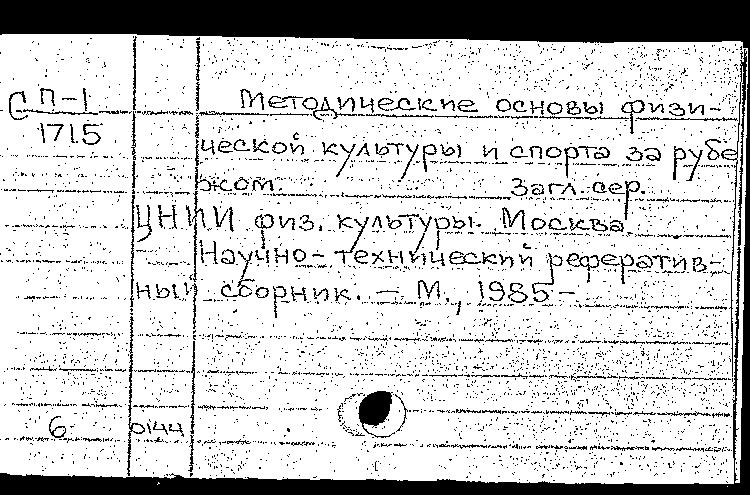 С П-1
1715
Методические основы физи-
ческой культуры и спорта за рубе
жом. Загл. сер.
ЦНИИ физ. культуры. Москва.
Научно-технический рефератив-
ный сборник. — М., 1985 —
6 0144